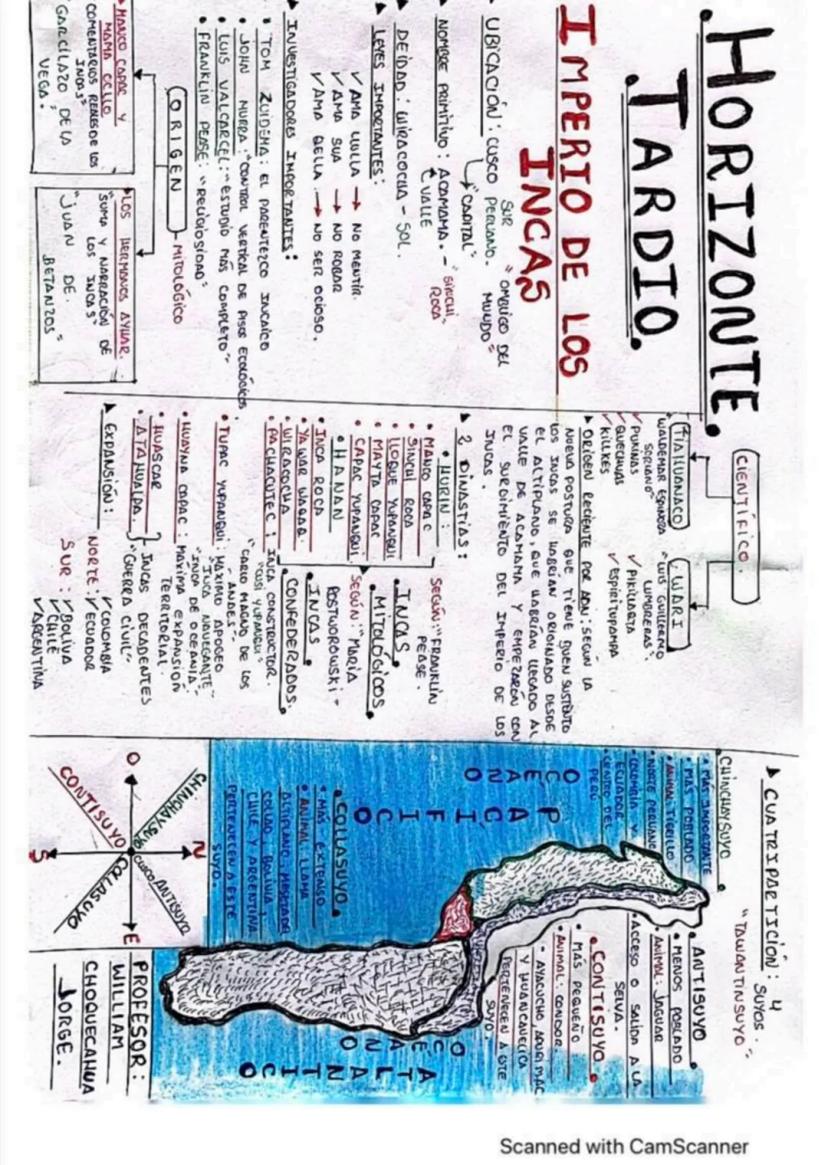 HORIZONTE
TARDIO.
IMPERIO DE LOS
INCAS
UBICACIÓN: CUSCO
SUR
PERUANO.
"OMBLIGO DEL
MUNDO"
"CAPITAL"
NOMBRE PRIMITIVO: ACAMAMA. - "SINCHI
VALLE
ROCA
DEIDAD: WIRACOCHA - SOL.
LEYES IMPORTANTES:
✓AMA LLULLA → NO MENTIR.
✓AMA SUA → NO ROBAR
✓AMA QELLA → NO SER OCIOSO.
INVESTIGADORES IMPORTANTES:
• TOM ZUIDEMA: EL PARENTEZCO INCAICO
• JOHN MURRA: "CONTROL VERTICAL DE PISOS ECOLÓGICOS
• LUIS VALCARCEL: "ESTUDIO MÁS COMPLETO"
• FRANKLIN PEASE: "RELIGIOSIDAD"
ORIGEN - MITOLÓGICO
MANCO CAPAC Y
MAMA OCLLO
COMENTARIOS REALES DE LOS
INCAS"
"GARCILAZO DE LA
VEGA."
LOS HERMANOS AYHAR.
"SUMA Y NARRACIÓN DE
LOS INCAS"
"JUAN DE
BETANZOS"
CIENTÍFICO.
TIAHUANACO
WALDEMAR ESPINOZA
SORIANO"
✓PUKINAS
✓QUECHUAS
✓KILLKES
WARI
"LUIS GUILLERMO
LUMBRERAS"
✓PIKILLACTA
✓ESPIRITUPAMPA
ORIGEN RECIENTE POR ADN: SEGÚN LA
NUEVA POSTURA QUE TIENE BUEN SUSTENTO
LOS INCAS SE HABRÍAN ORIGINADO DESDE
EL ALTIPLANO, QUE HABRÍAN LLEGADO AL
VALLE DE ACAMAMA Y EMPEZARÓN CON
EL SURGIMIENTO DEL IMPERIO DE LOS
INCAS.
2 DINASTÍAS:
• HURIN:
• MANCO CAPAC
• SINCHI ROCA
• LLOQUE YUPANQUI
• MAYTA CAPAC
• CAPAC YUPANQUI
SEGÚN: "FRANKLIN
PEASE.
INCAS
MITOLÓGICOS
• HANAN
• INCA ROCA
• YAWAR WAQAQ.
• WIRACOCHA
SEGÚN: "MARÍA
ROSTWOROWSKI-
INCAS
CONFEDERADOS.
• PACHACUTEC: INCA CONSTRUCTOR.
"CUSI YUPANQUI"
"CARLO MAGNO DE LOS
ANDES"
• TUPAC YUPANQUI: MÁXIMO APOGEO
"INCA NAVEGANTE"
"INCA DE OCEANIA"
• HUAYNA CAPAC: MÁXIMA EXPANSIÓN
TERRITORIAL
• HUASCAR
• ATAHUALPA.
INCAS DECADENTES
"GUERRA CIVIL"
EXPANSIÓN:
NORTE: ✓COLOMBIA
✓ECUADOR
SUR: ✓BOLIVA
✓CHILE
✓ARGENTINA
CUATRIPARTICIÓN: 4
SUYOS.
"TAWANTINSUYO"
CHINCHAYSUYO
• MÁS IMPORTANTE
• MAS POBLADO
• ANIMAL: TIGRILLO
• NORTE PERUANO
COLOMBIA Y
ECUADOR
CENTRO DEL
PERÚ
ANTISUYO
• MENOS POBLADO
ANIMAL: JAGUAR
• ACCESO O SALIDA A LA
SELVA.
• CONTISUYO
• MAS PEQUEÑO
• ANIMAL: CONDOR.
• AYACUCHO, APURIMAC
Y HUANCAVELICA
PERTENECEN A ESTE
SUYO.
OCEANO
PACIFICO
• COLLASUYO
• MAS EXTENSO
• ANIMAL: LLAMA
ALTIPLANO, MESETA DE
COLLAO, BOLIVIA,
CHILE Y ARGENTINA
PERTENECEN A ESTE
SUYO.
OCEANO
ATLANTICO
N
CHINCHAYSUYO
ANTISUYO
O
CUSCO
E
CONTISUYO
COLLASUYO
S
PROFESOR:
WILLIAM
CHOQUECAHUA
JORGE.
Scanned with CamScanner